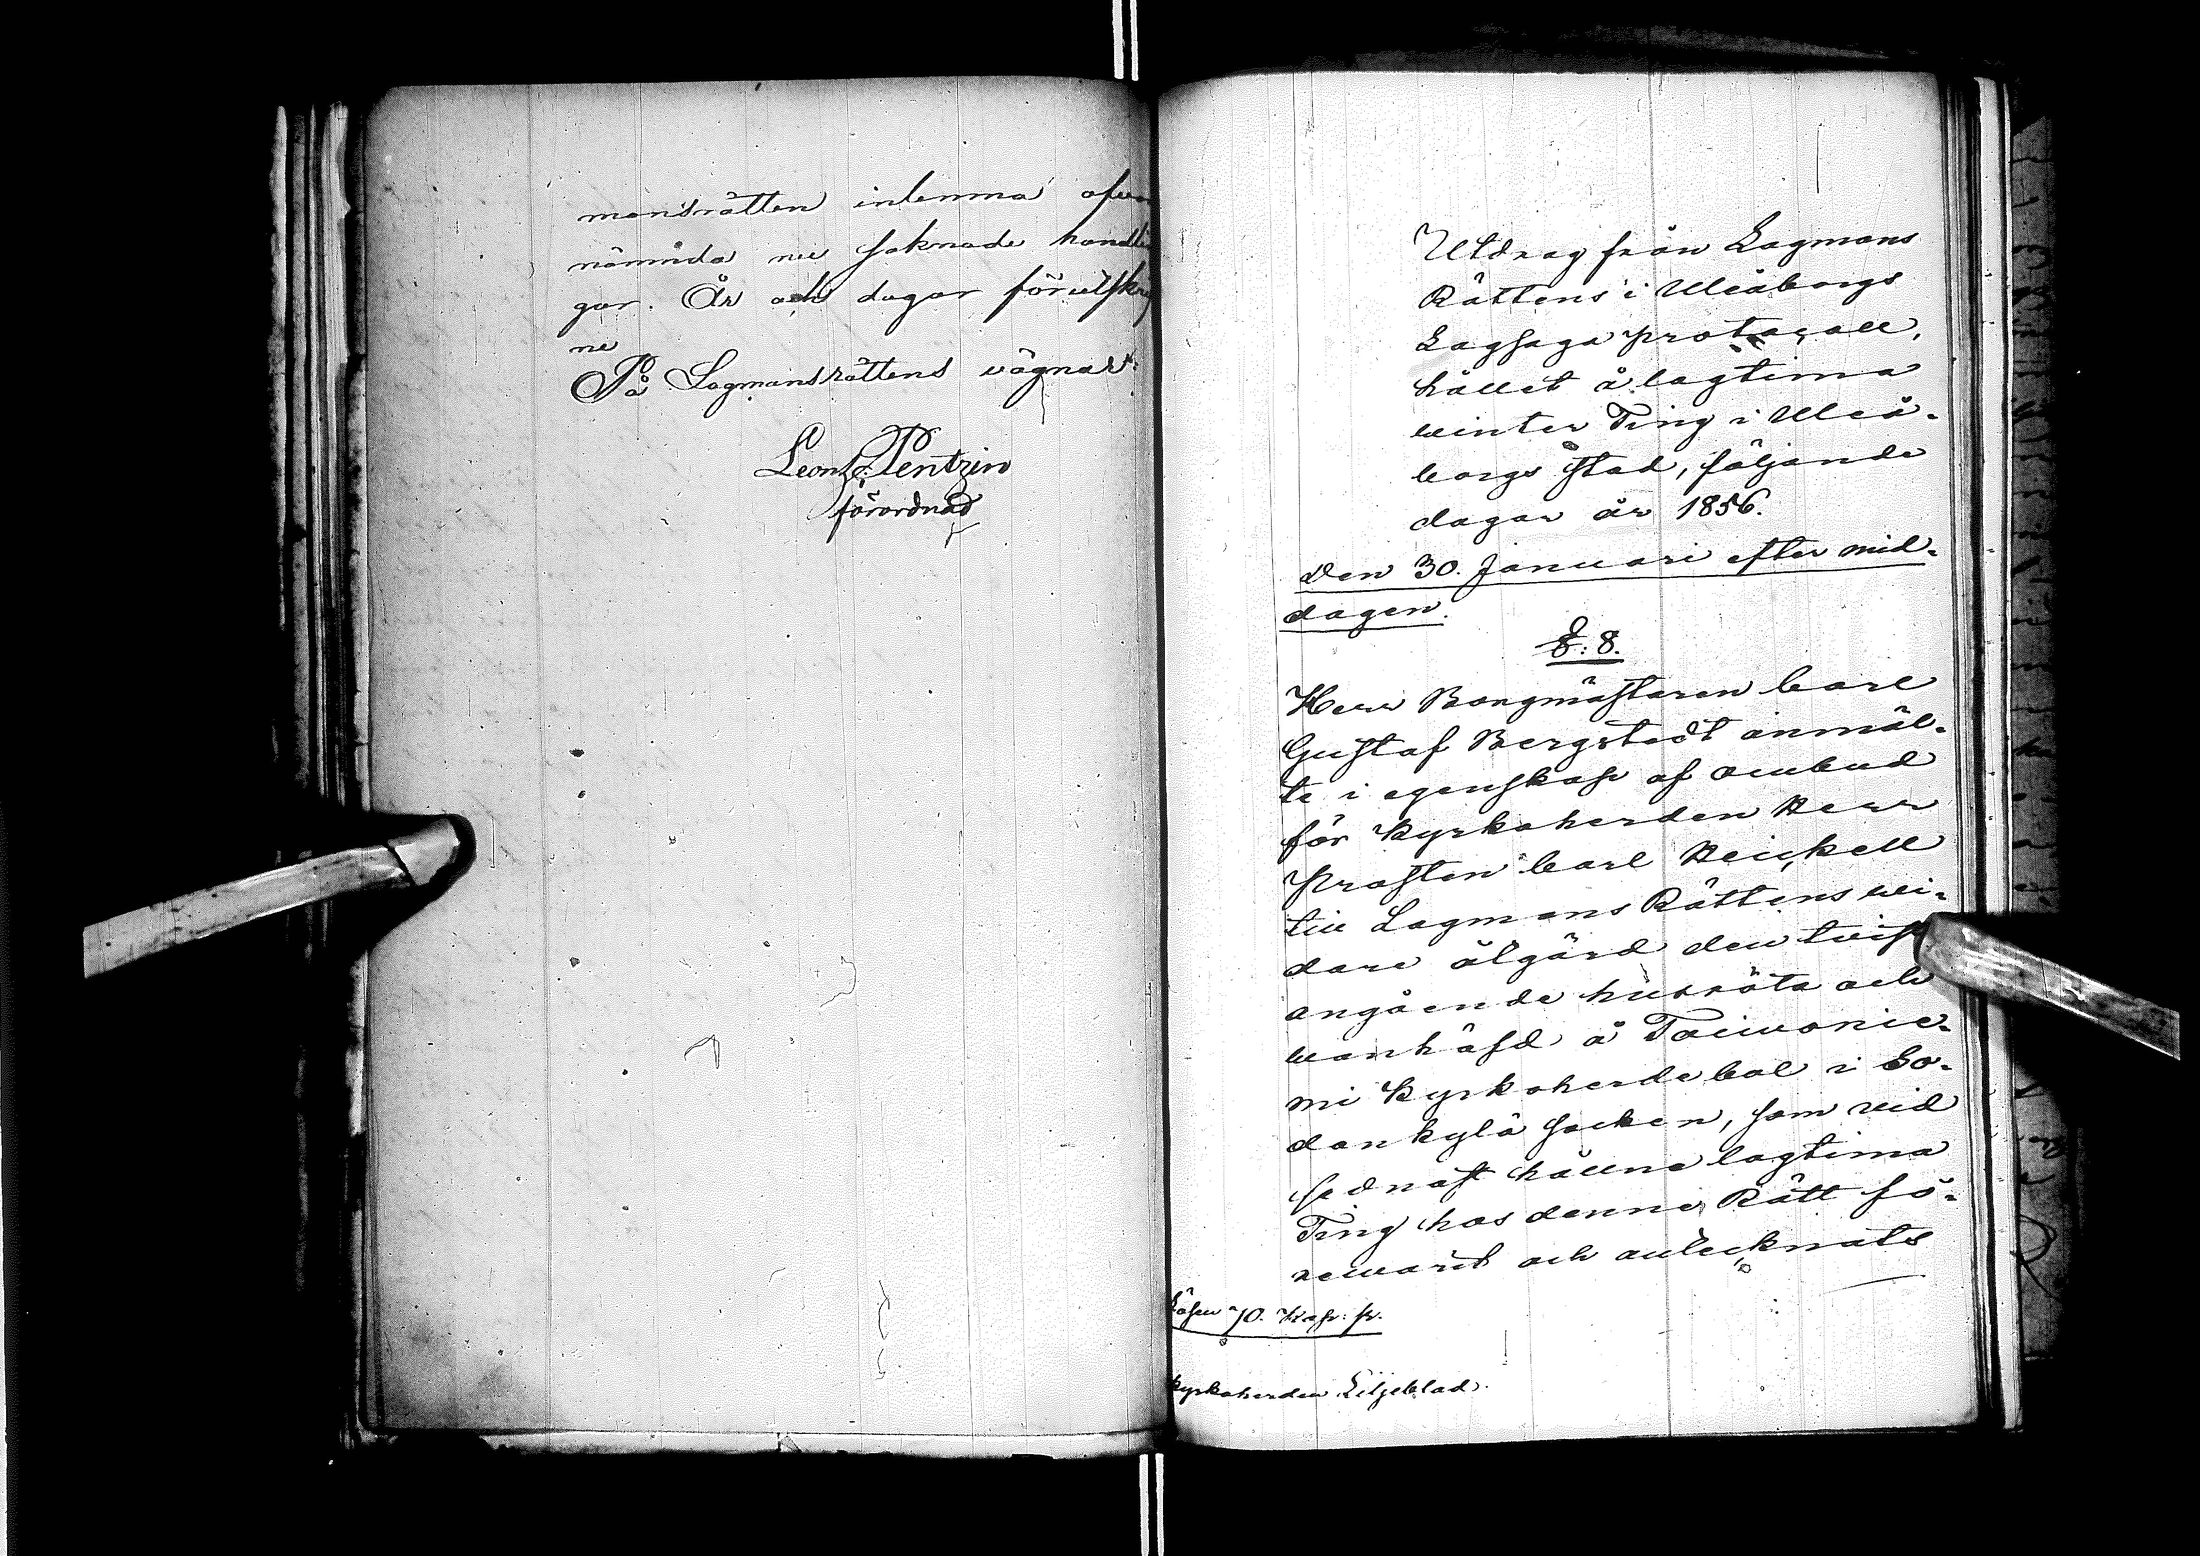 mansrätten inlemna ofvan
nämnda nu saknade handlin
gar. År och dagar förutskrif
ne
På Lagmansrättens vägnar:
Leonh. Pentzin
förordnad
Utdrag från Lagmans
Rättens i Uleåborgs
Lagsaga protocoll,
hållet å lagtima
winter Ting i Uleå-
borgs stad, följande
dagar år 1856.
Den 30. Januari efter mid-
dagen.
§. 8.
Herr Borgmästaren Carl
Gustaf Bergstedt anmäl-
te i egenskap af ombud
för Kyrkoherden Herr
Prosten Carl Heickell
till Lagmans Rättens vi-
dare åtgärd den twist
angående husröta och
wanhäfd å Taiwonie-
mi Kyrkoherdebol i So-
dankylä socken, som vid
sednast hållne lagtima
Ting hos denne Rätt fö-
rewarit och antecknats
70. Kop. sr.
Kyrkoherden Liljeblad.